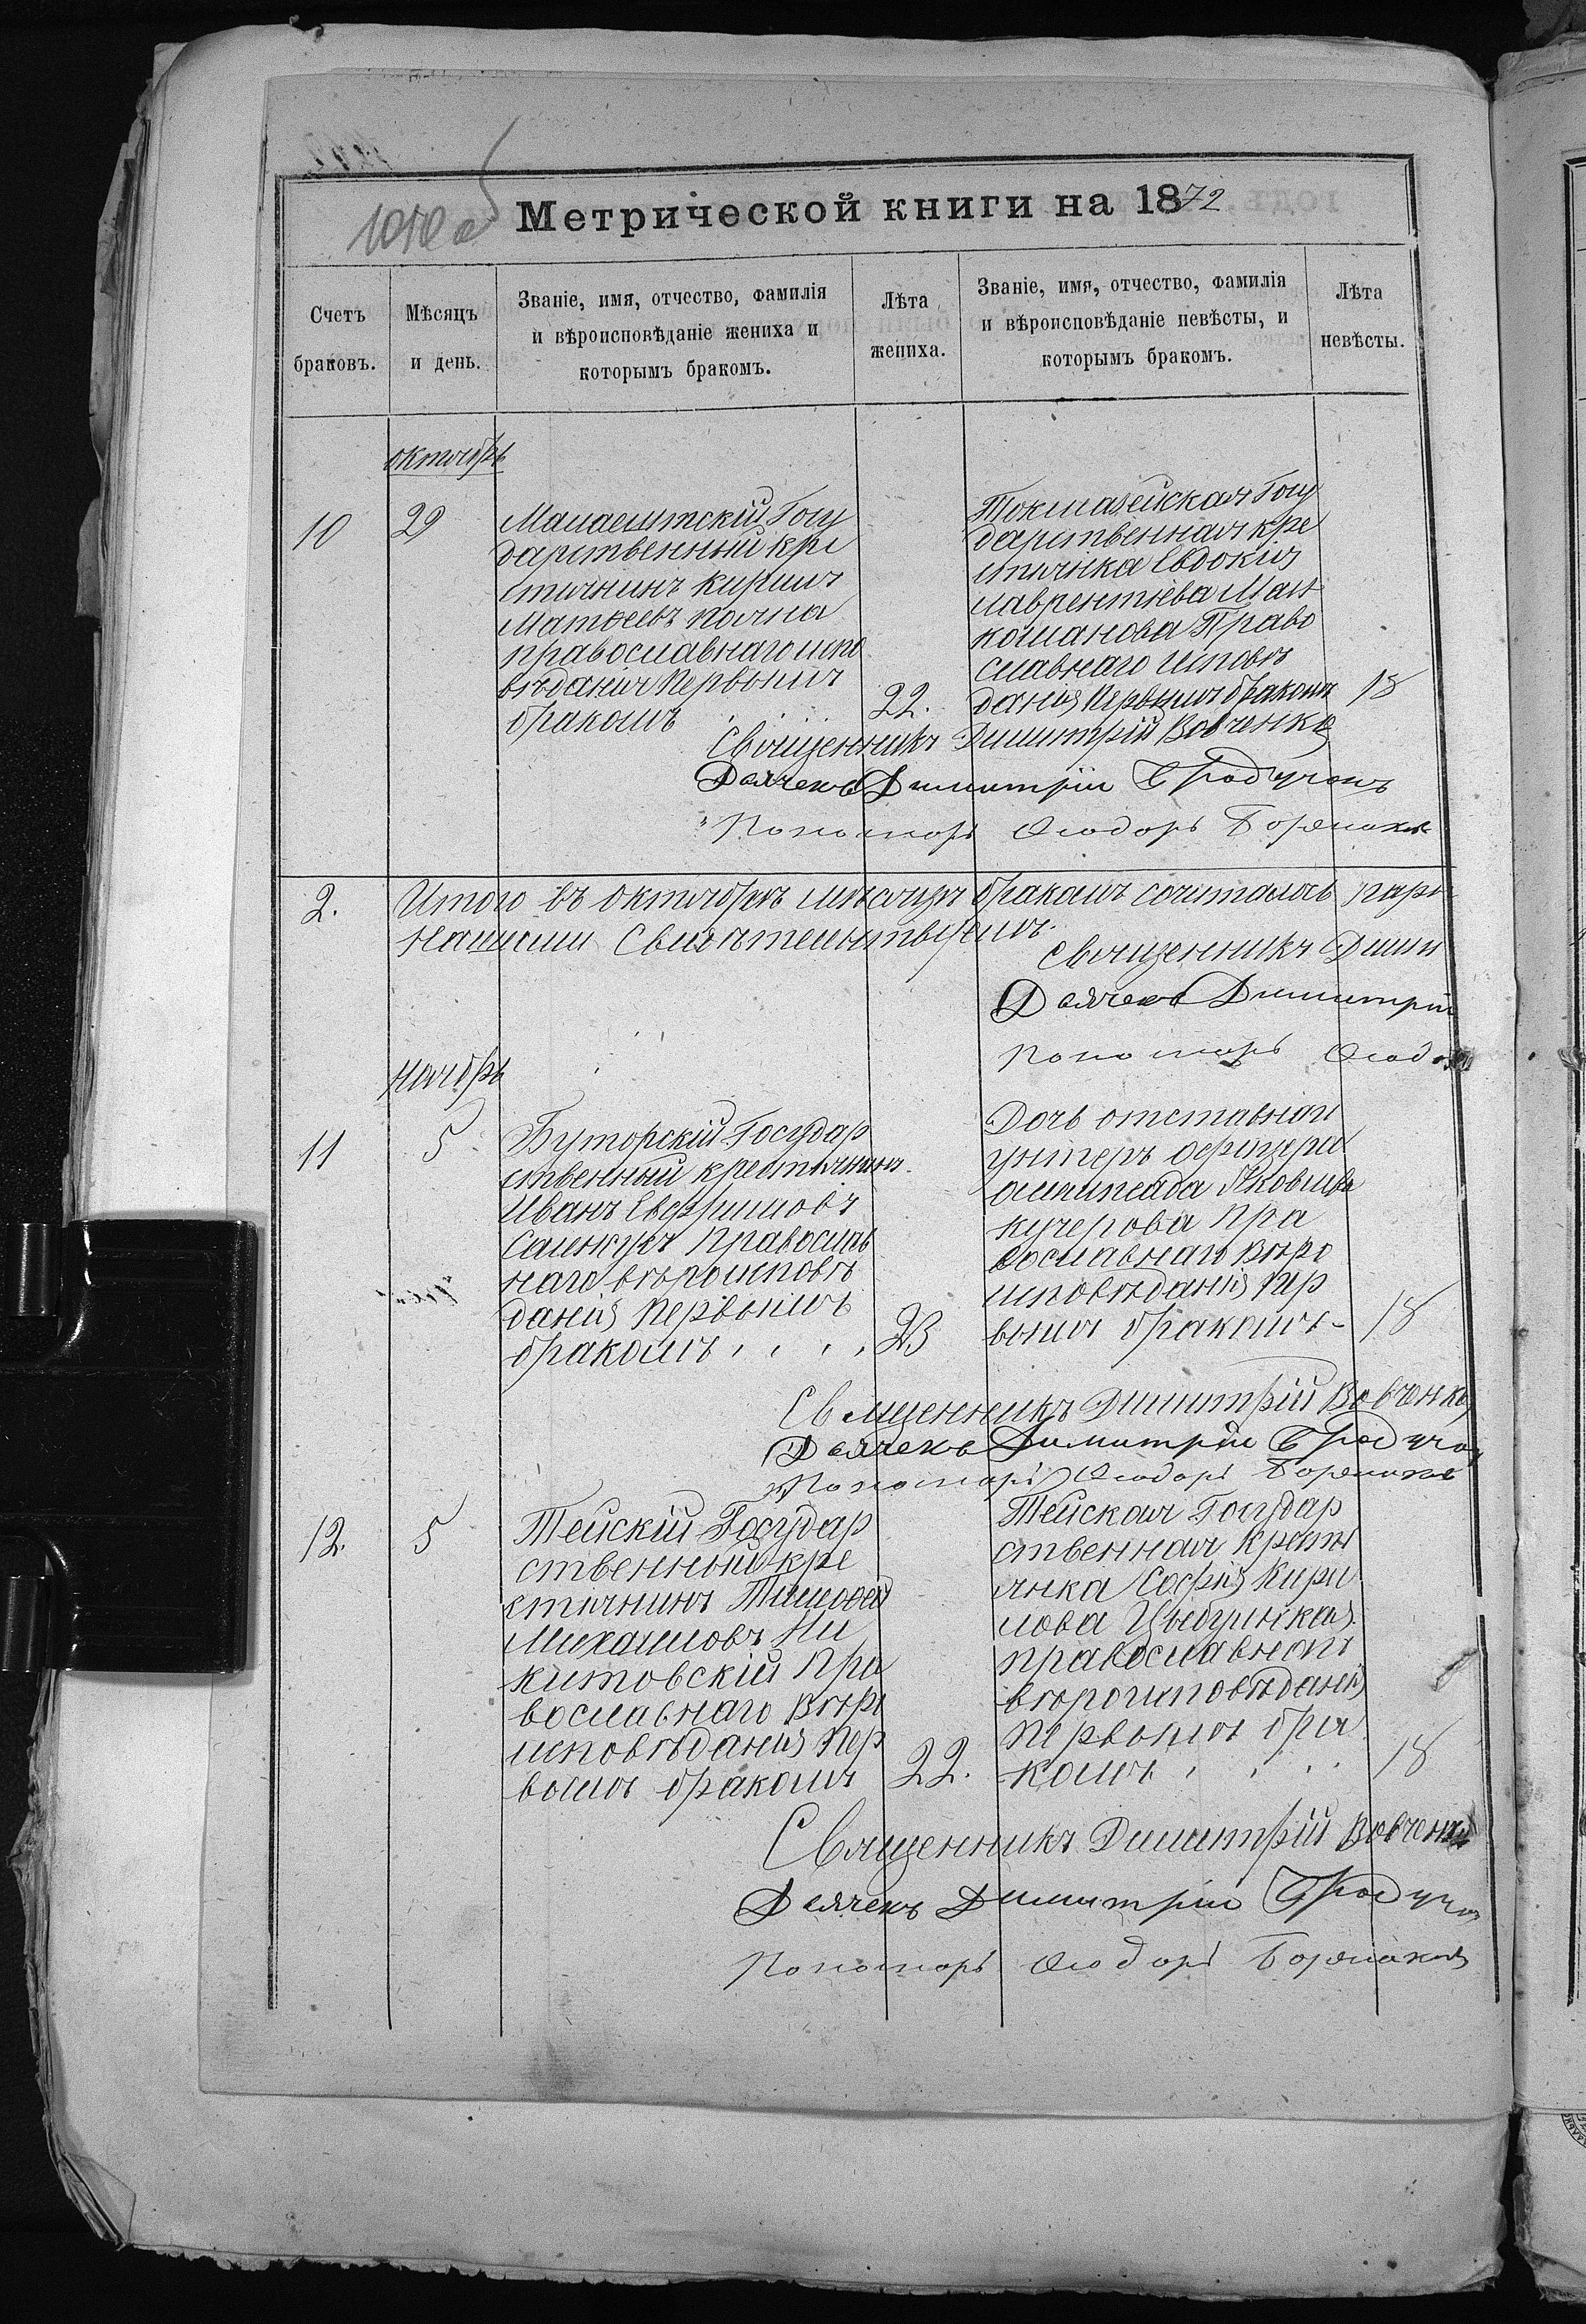 Метрической книги на 1872
Счетъ
браковъ.
Мѣсяцъ
и день.
Званіе, имя, отчество, фамилія
и вѣроисповѣданіе жениха и
которымъ бракомъ.
Лѣта
жениха.
Званіе, имя, отчество, фамилія
и вѣроисповѣданіе невѣсты, и
которымъ бракомъ.
Лѣта
невѣсты.
октябрь
10
29
Малаештскій Госу
дарственный кре
стьянинъ Кирилъ
Матѳеевъ
православнаго испо
вѣданія Первымъ
бракомъ
22.
Токмазейская Госу
дарственная кре
стьянка Евдокія
Лаврентіева
Право
славнаго исповѣ
данія Первымъ бракомъ
18
Священникъ Димитрій Вовченко
Дьячекъ Димитрій
Пономарь Ѳеодоръ
2.
Итого въ октябрѣ мѣсяцѣ бракомъ сочиталось
Священникъ Дими
Дьячекъ Димитрій
Пономарь Ѳеодо
ноябрь
11
5
Буторскій Государ
ственный крестьянинъ
Иванъ Евфимовъ
Православ
наго вѣроисповѣ
данія Первымъ
бракомъ
23
Дочь отставнаго
унтеръ офицера
Яковлева
Кучерова Пра
вославнаго вѣро
исповѣданія Пер
вымъ бракомъ
18
Священникъ Димитрій Вовченко
Дьячекъ Димитрій
Пономарь Ѳеодоръ
12.
5
Тейскій Государ
ственный кре
стьянинъ Тимоѳей
Михайловъ Ни
китовскій Пра
вославнаго Вѣро
исповѣданія Пер
вымъ бракомъ
22.
Тейская Государ
ственная Крестья
янка Софія Кири
лова
православнаго
вѣроисповѣданія
Первымъ бра
комъ
18
Священникъ Димитрій Вовченко
Дьячекъ Димитрій
Пономарь Ѳеодоръ